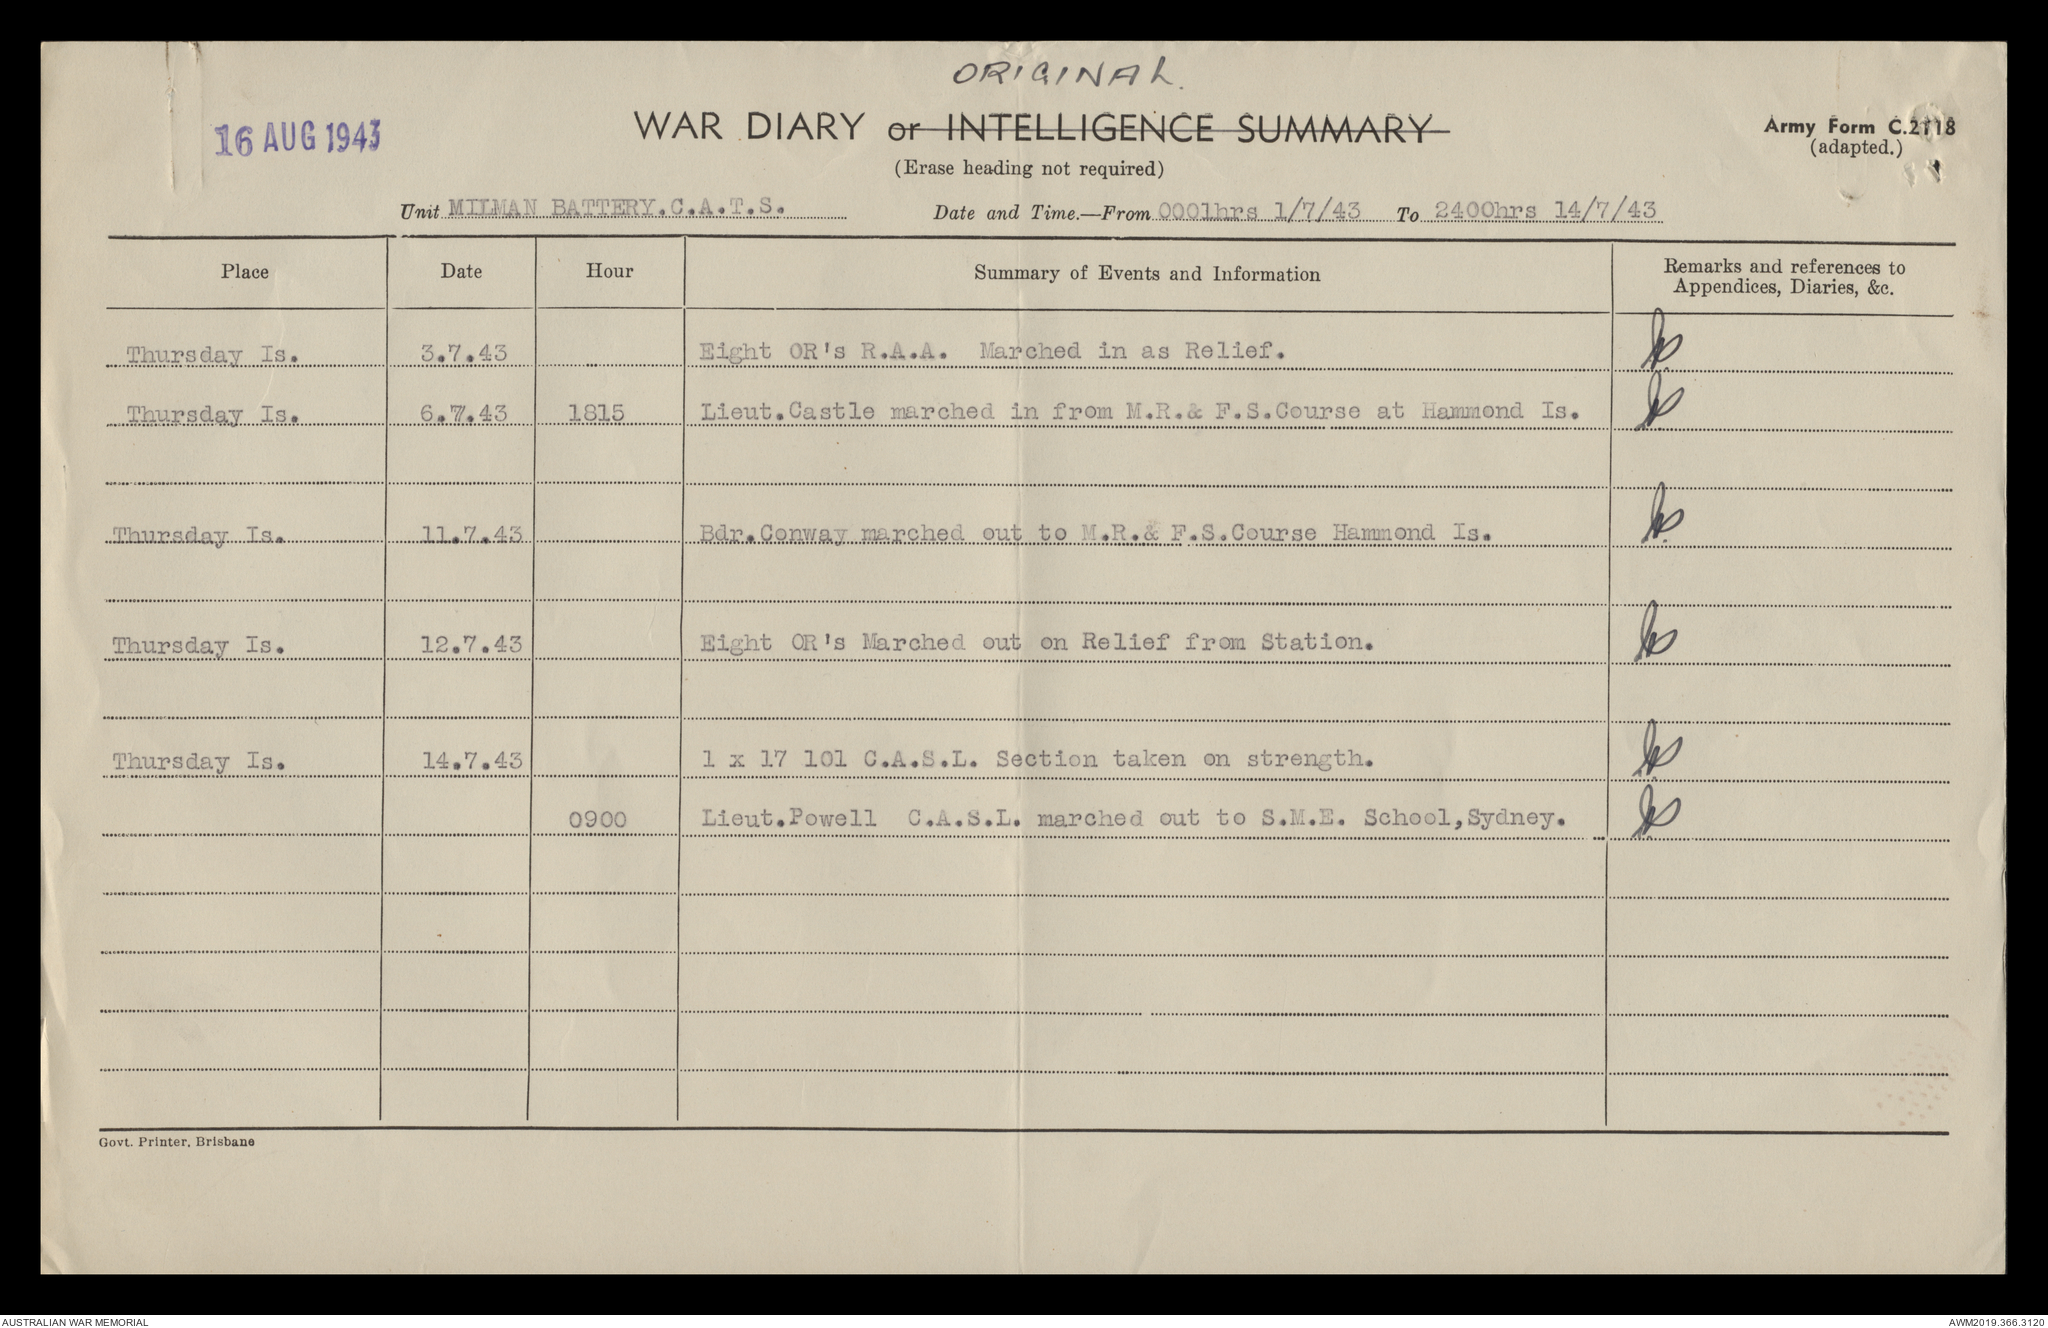 ORIGINAL.
16 AUG 1943
WAR DIARY or INTELLIGENCE SUMMARY
Army Form C.2118
(adapted.)
(Erase heading not required)
Unit MILMAN BATTERY.C.A.T.S. Date and Time.—From 0001hrs 1/7/43 To 2400hrs 14/7/43
Place Date Hour Summary of Events and Information Remarks and references to
Appendices, Diaries, &c.
Thursday Is. 3.7.43 Eight OR's R.A.A. Marched in as Relief.
Thursday Is. 6.7.43 1815 Lieut.Castle marched in from M.R.& F.S.Course at Hammond Is.
Thursday Is. 11.7.43 Bdr.Conway marched out to M.R.& F.S.Course Hammond Is.
Thursday Is. 12.7.43 Eight OR's Marched out on Relief from Station.
Thursday Is. 14.7.43 1 x 17 101 C.A.S.L. Section taken on strength.
0900 Lieut.Powell C.A.S.L. marched out to S.M.E. School,Sydney.
Govt. Printer, Brisbane
AUSTRALIAN WAR MEMORIAL
AWM2019.366.3120